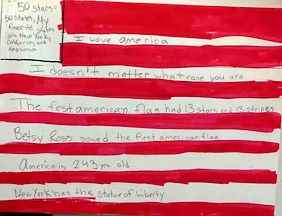 50 stars=
50 states. My
favorite states
are New York,
California, and
Arizona
I love america
I doesn't matter what race you are
The first american flag had 13 stars and 13 stripes
Betsy Ross sowed the first american flag
America is 243 yrs old
New York has the statue of Liberty